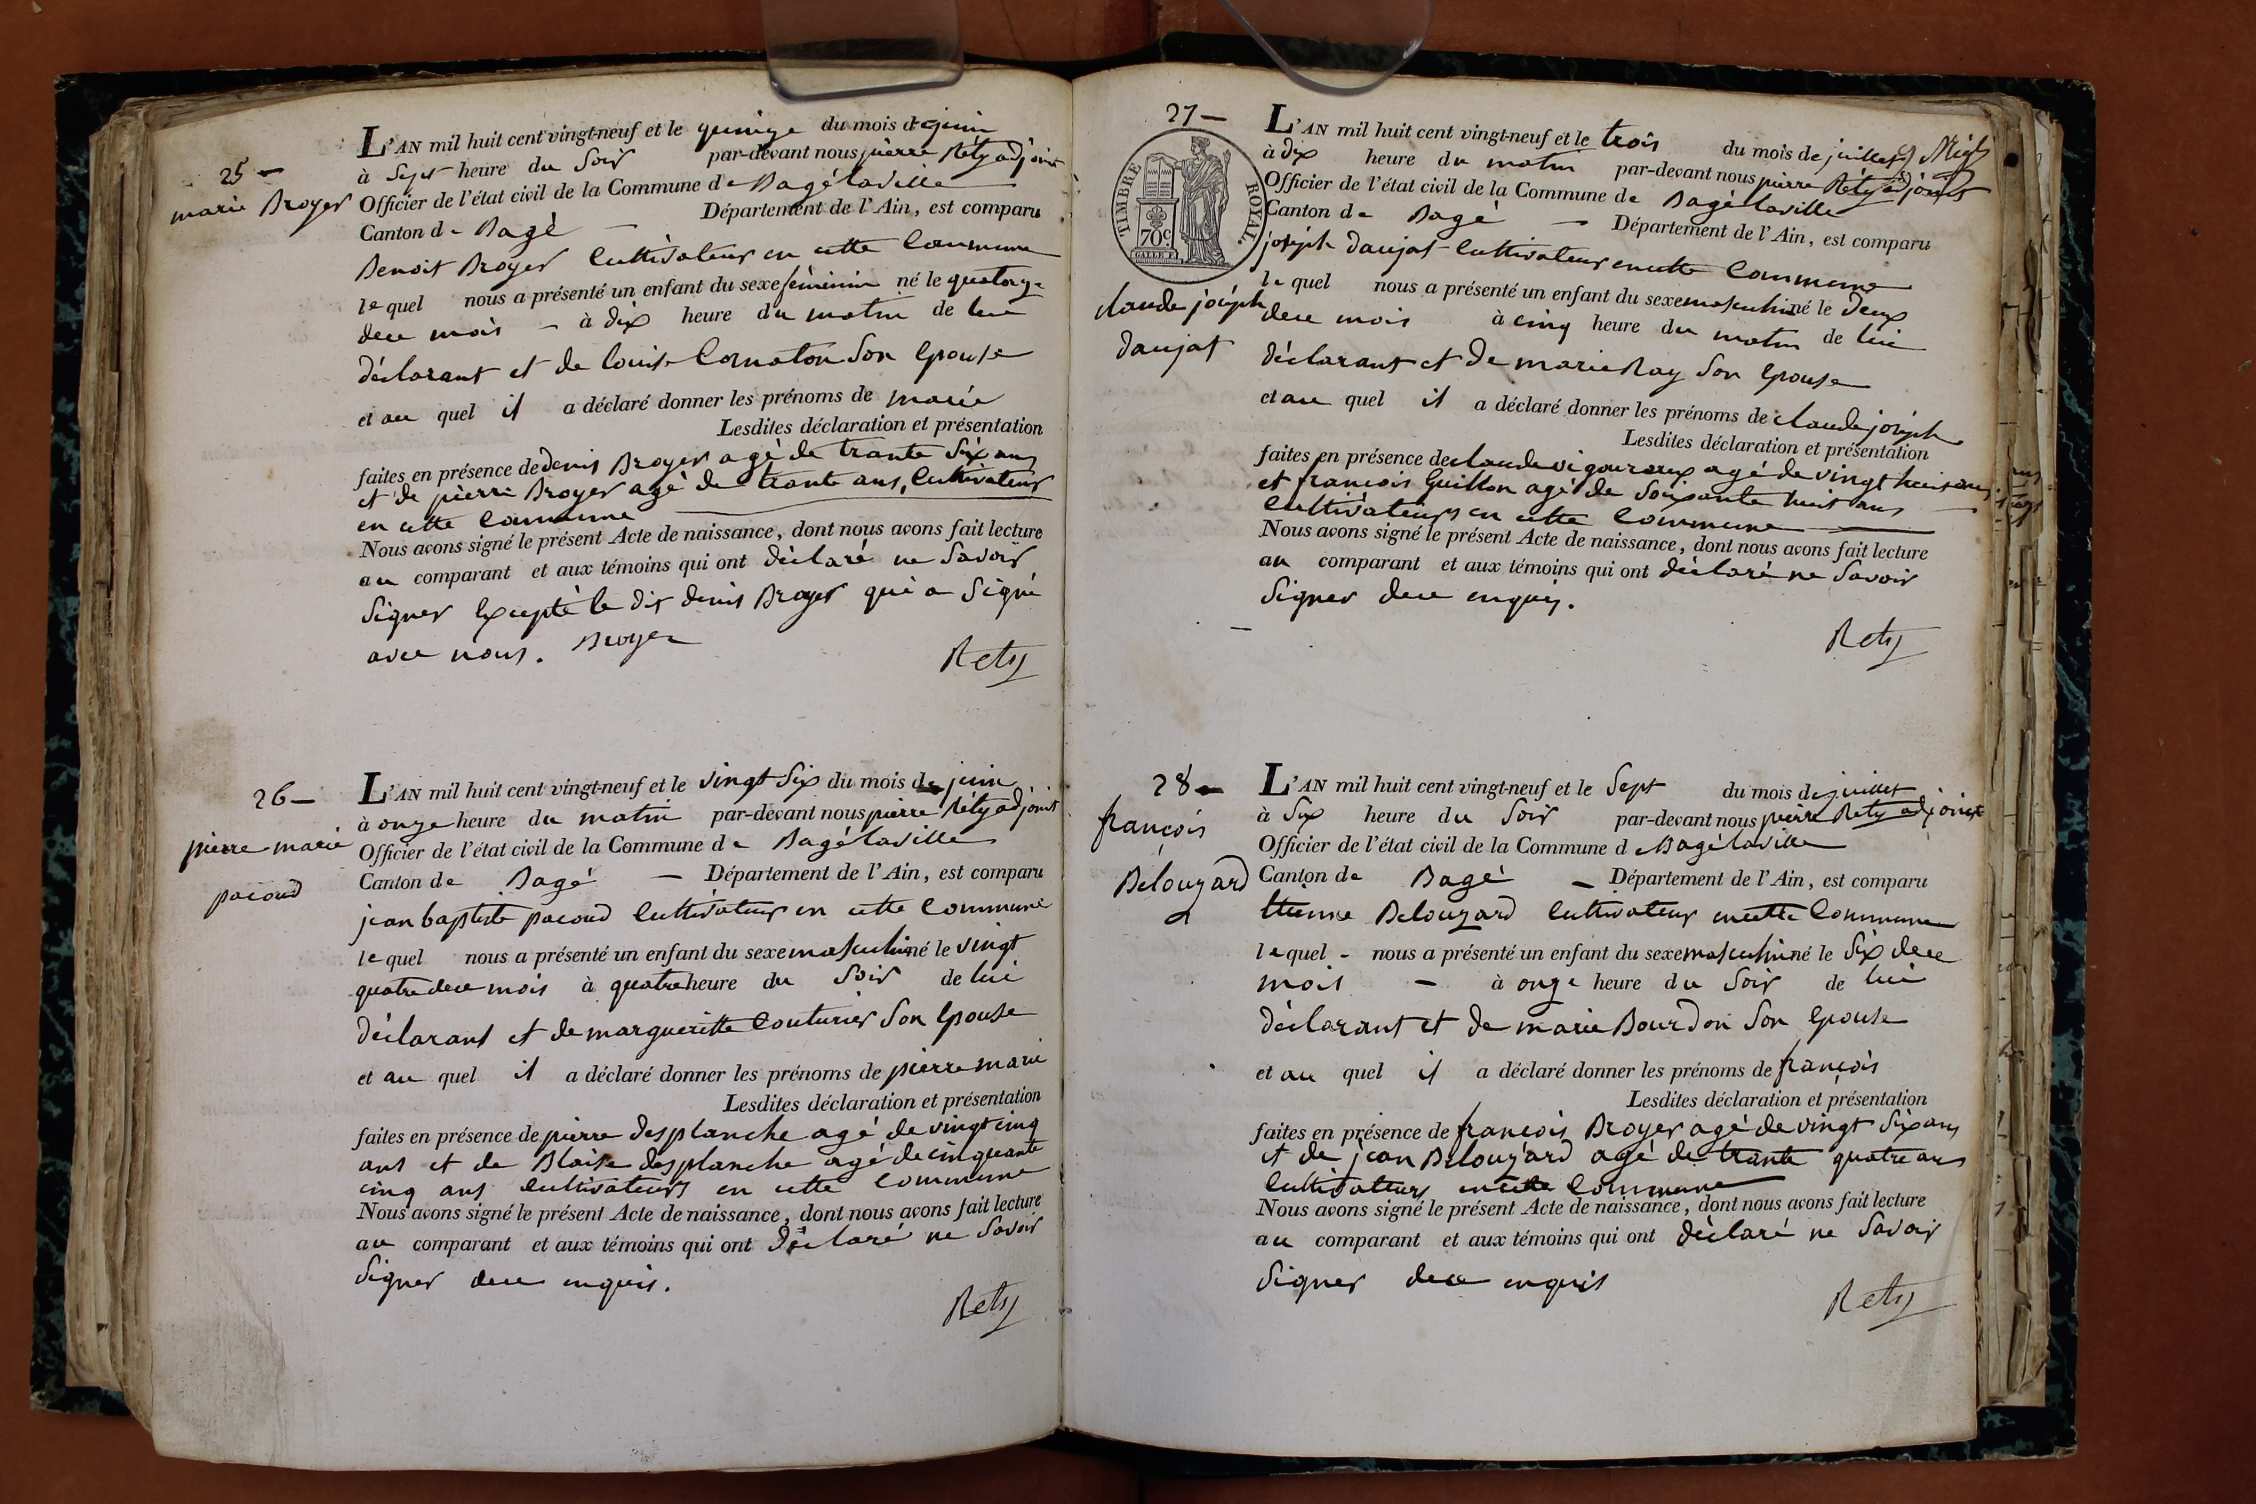 25 —
marie Broyer
L'AN mil huit cent vingt-neuf et le quinze du mois de juin
à Sept heure du Soir par-devant nous pierre Réty adjoint
Officier de l'état civil de la Commune de Bagé laville
Canton de Bagé — Département de l'Ain, est comparu
Benoit Broyer Cultivateur en cette Commune
le quel nous a présenté un enfant du sexe féminin né le quatorze
dece mois — à dix heure du matin de lui
déclarant et de louise Cornaton Son Epouse
et au quel il a déclaré donner les prénoms de marie
Lesdites déclaration et présentation
faites en présence de denis Broyer agé de trante Six ans
et de pierre Broyer agé de trante ans, Cultivateurs
en cette Commune
Nous avons signé le présent Acte de naissance, dont nous avons fait lecture
au comparant et aux témoins qui ont déclaré ne Savoir
Signer Excepté le dit denis Broyer qui a Signé
avec nous. Broyer
Rety
26 —
pierre marie
pacoud
L'AN mil huit cent vingt-neuf et le vingt Six du mois de juin
à onze heure du matin par-devant nous pierre Réty adjoint
Officier de l'état civil de la Commune de Bagé laville
Canton de Bagé — Département de l'Ain, est comparu
jean baptiste pacoud Cultivateur en cette Commune
le quel nous a présenté un enfant du sexe masculin né le vingt
quatre dece mois à quatre heure du Soir de lui
déclarant et de margueritte Couturier Son Epouse
et au quel il a déclaré donner les prénoms de pierre marie
Lesdites déclaration et présentation
faites en présence de pierre desplanche agé de vingt cinq
ans et de Blaise desplanche agé de cinquante
cinq ans Cultivateurs en cette Commune
Nous avons signé le présent Acte de naissance, dont nous avons fait lecture
au comparant et aux témoins qui ont déclaré ne Savoir
Signer dece enquis.
Rety
27 —
TIMBRE ROYAL.
70c
claude joseph
daujat
L'AN mil huit cent vingt-neuf et le trois du mois de juillet
à dix heure du matin par-devant nous pierre Réty adjoint
Officier de l'état civil de la Commune de Bagé laville
Canton de Bagé — Département de l'Ain, est comparu
joseph daujat Cultivateur en cette Commune
le quel nous a présenté un enfant du sexe masculin né le deux
dece mois à cinq heure du matin de lui
déclarant et de marie Ray Son Epouse
et au quel il a déclaré donner les prénoms de claude joseph
Lesdites déclaration et présentation
faites en présence de claude vigouroux agé de vingt huit ans
et francois Guillon agé de Soixante huit ans
Cultivateurs en cette Commune
Nous avons signé le présent Acte de naissance, dont nous avons fait lecture
au comparant et aux témoins qui ont déclaré ne Savoir
Signer dece enquis.
Rety
28 —
françois
Bélouzard
L'AN mil huit cent vingt-neuf et le Sept du mois de juillet
à Six heure du Soir par-devant nous pierre Réty adjoint
Officier de l'état civil de la Commune de Bagé laville
Canton de Bagé — Département de l'Ain, est comparu
Etienne Belouzard Cultivateur en cette Commune
le quel - nous a présenté un enfant du sexe masculin né le Six dece
mois — à onze heure du Soir de lui
déclarant et de marie Bourdon Son Epouse
et au quel il a déclaré donner les prénoms de françois
Lesdites déclaration et présentation
faites en présence de françois Broyer agé de vingt Six ans
et de jean Belouzard agé de trante quatre ans
Cultivateurs en cette Commune
Nous avons signé le présent Acte de naissance, dont nous avons fait lecture
au comparant et aux témoins qui ont déclaré ne Savoir
Signer dece enquis
Rety